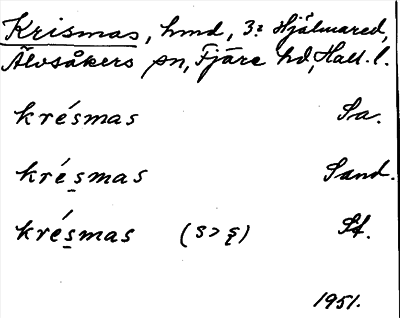 Krismas, hmd, 3: Hjälmared,
Älvsåkers sn, Fjäre hd, Hall. l.
krésmas Sa.
krés̱mas Sand.
krés̱mas (s > ş) Sf.
1951.